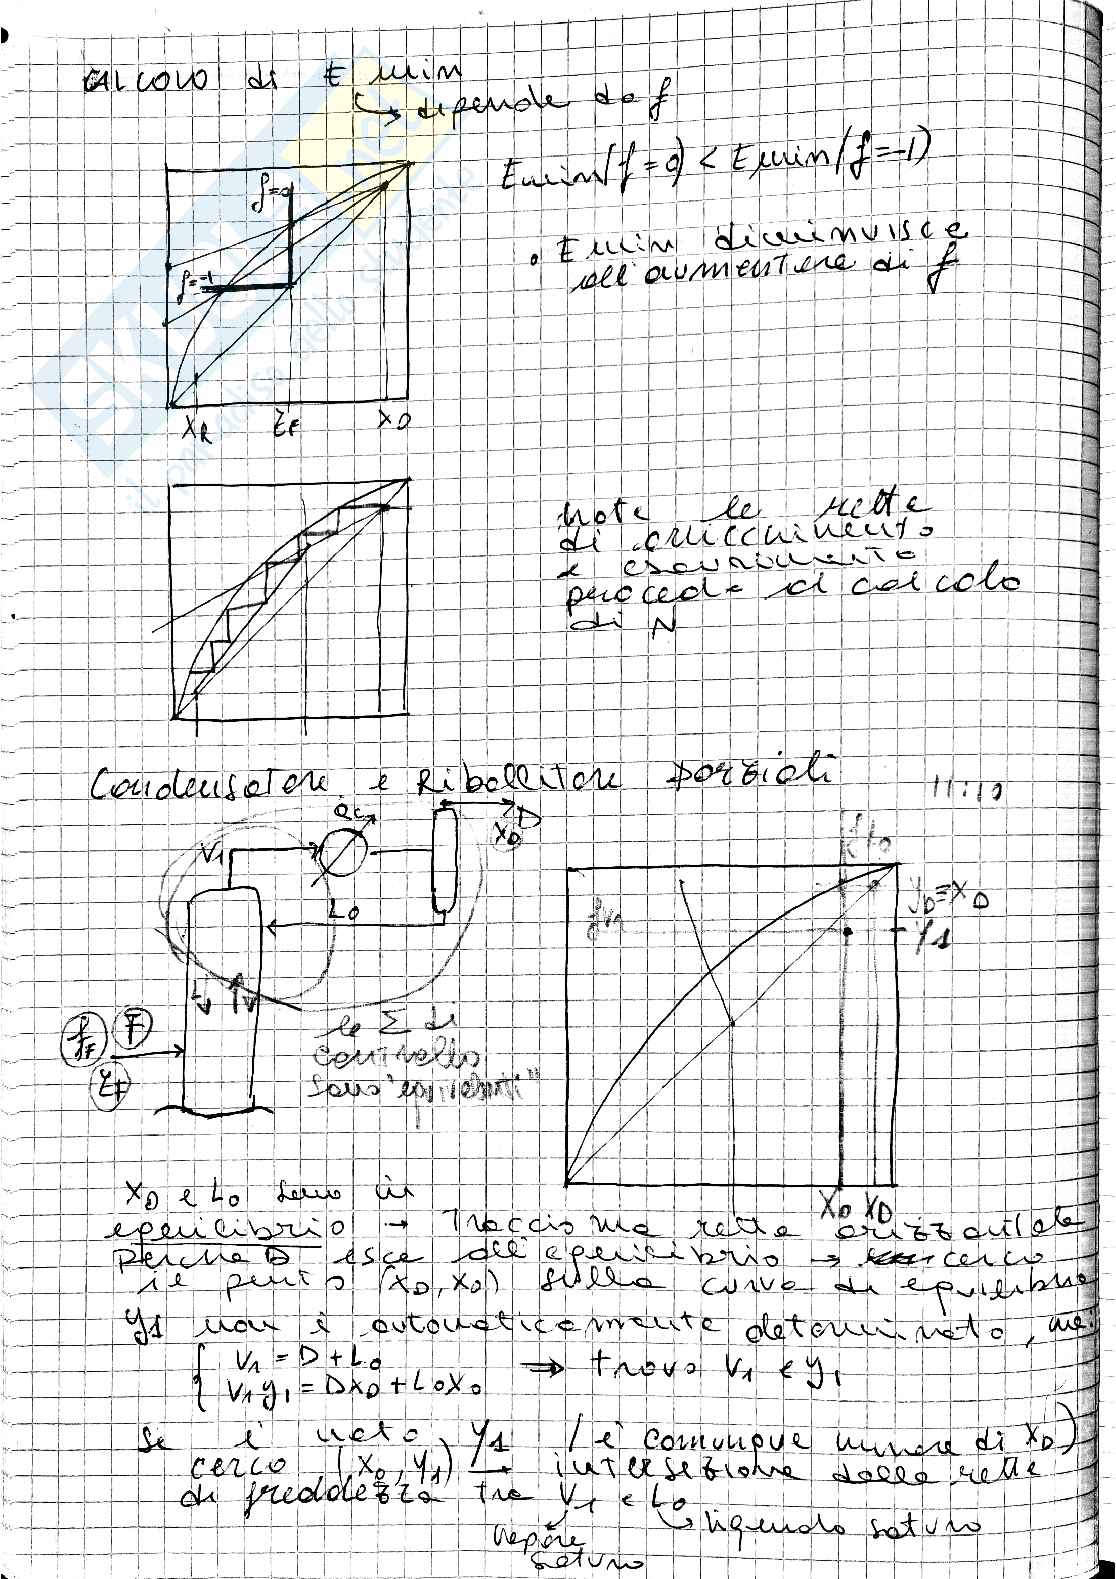 CALCOLO di E min
↳ dipende da f
Emin(f=0) < Emin(f=-1)
f=0
• Emin diminuisce
all'aumentare di f
f=-1
xR zF xD
Note le rette
di arricchimento
e esaurimento
procedo al calcolo
di N
Condensatore e Ribollitore parziali 11:10
Qc
D
xD
V1
L0
fL0
yD≡xD
fV1
y1
L V
le Σ di
controllo
sono "equivalenti"
fF F
zF
x0 xD
xD e L0 sono in
equilibrio → Traccio una retta orizzontale
perché D esce all'equilibrio → cerco
il punto (x0, xD) sulla curva di equilibrio
y1 non è automaticamente determinato, ma
V1 = D + L0 ⇒ trovo V1 e y1
V1y1 = DxD + L0x0
Se è noto y1 (è comunque minore di xD)
cerco (x0, y1) → intersezione delle rette
di freddezza tra V1 e L0
↳ liquido saturo
vapore
saturo